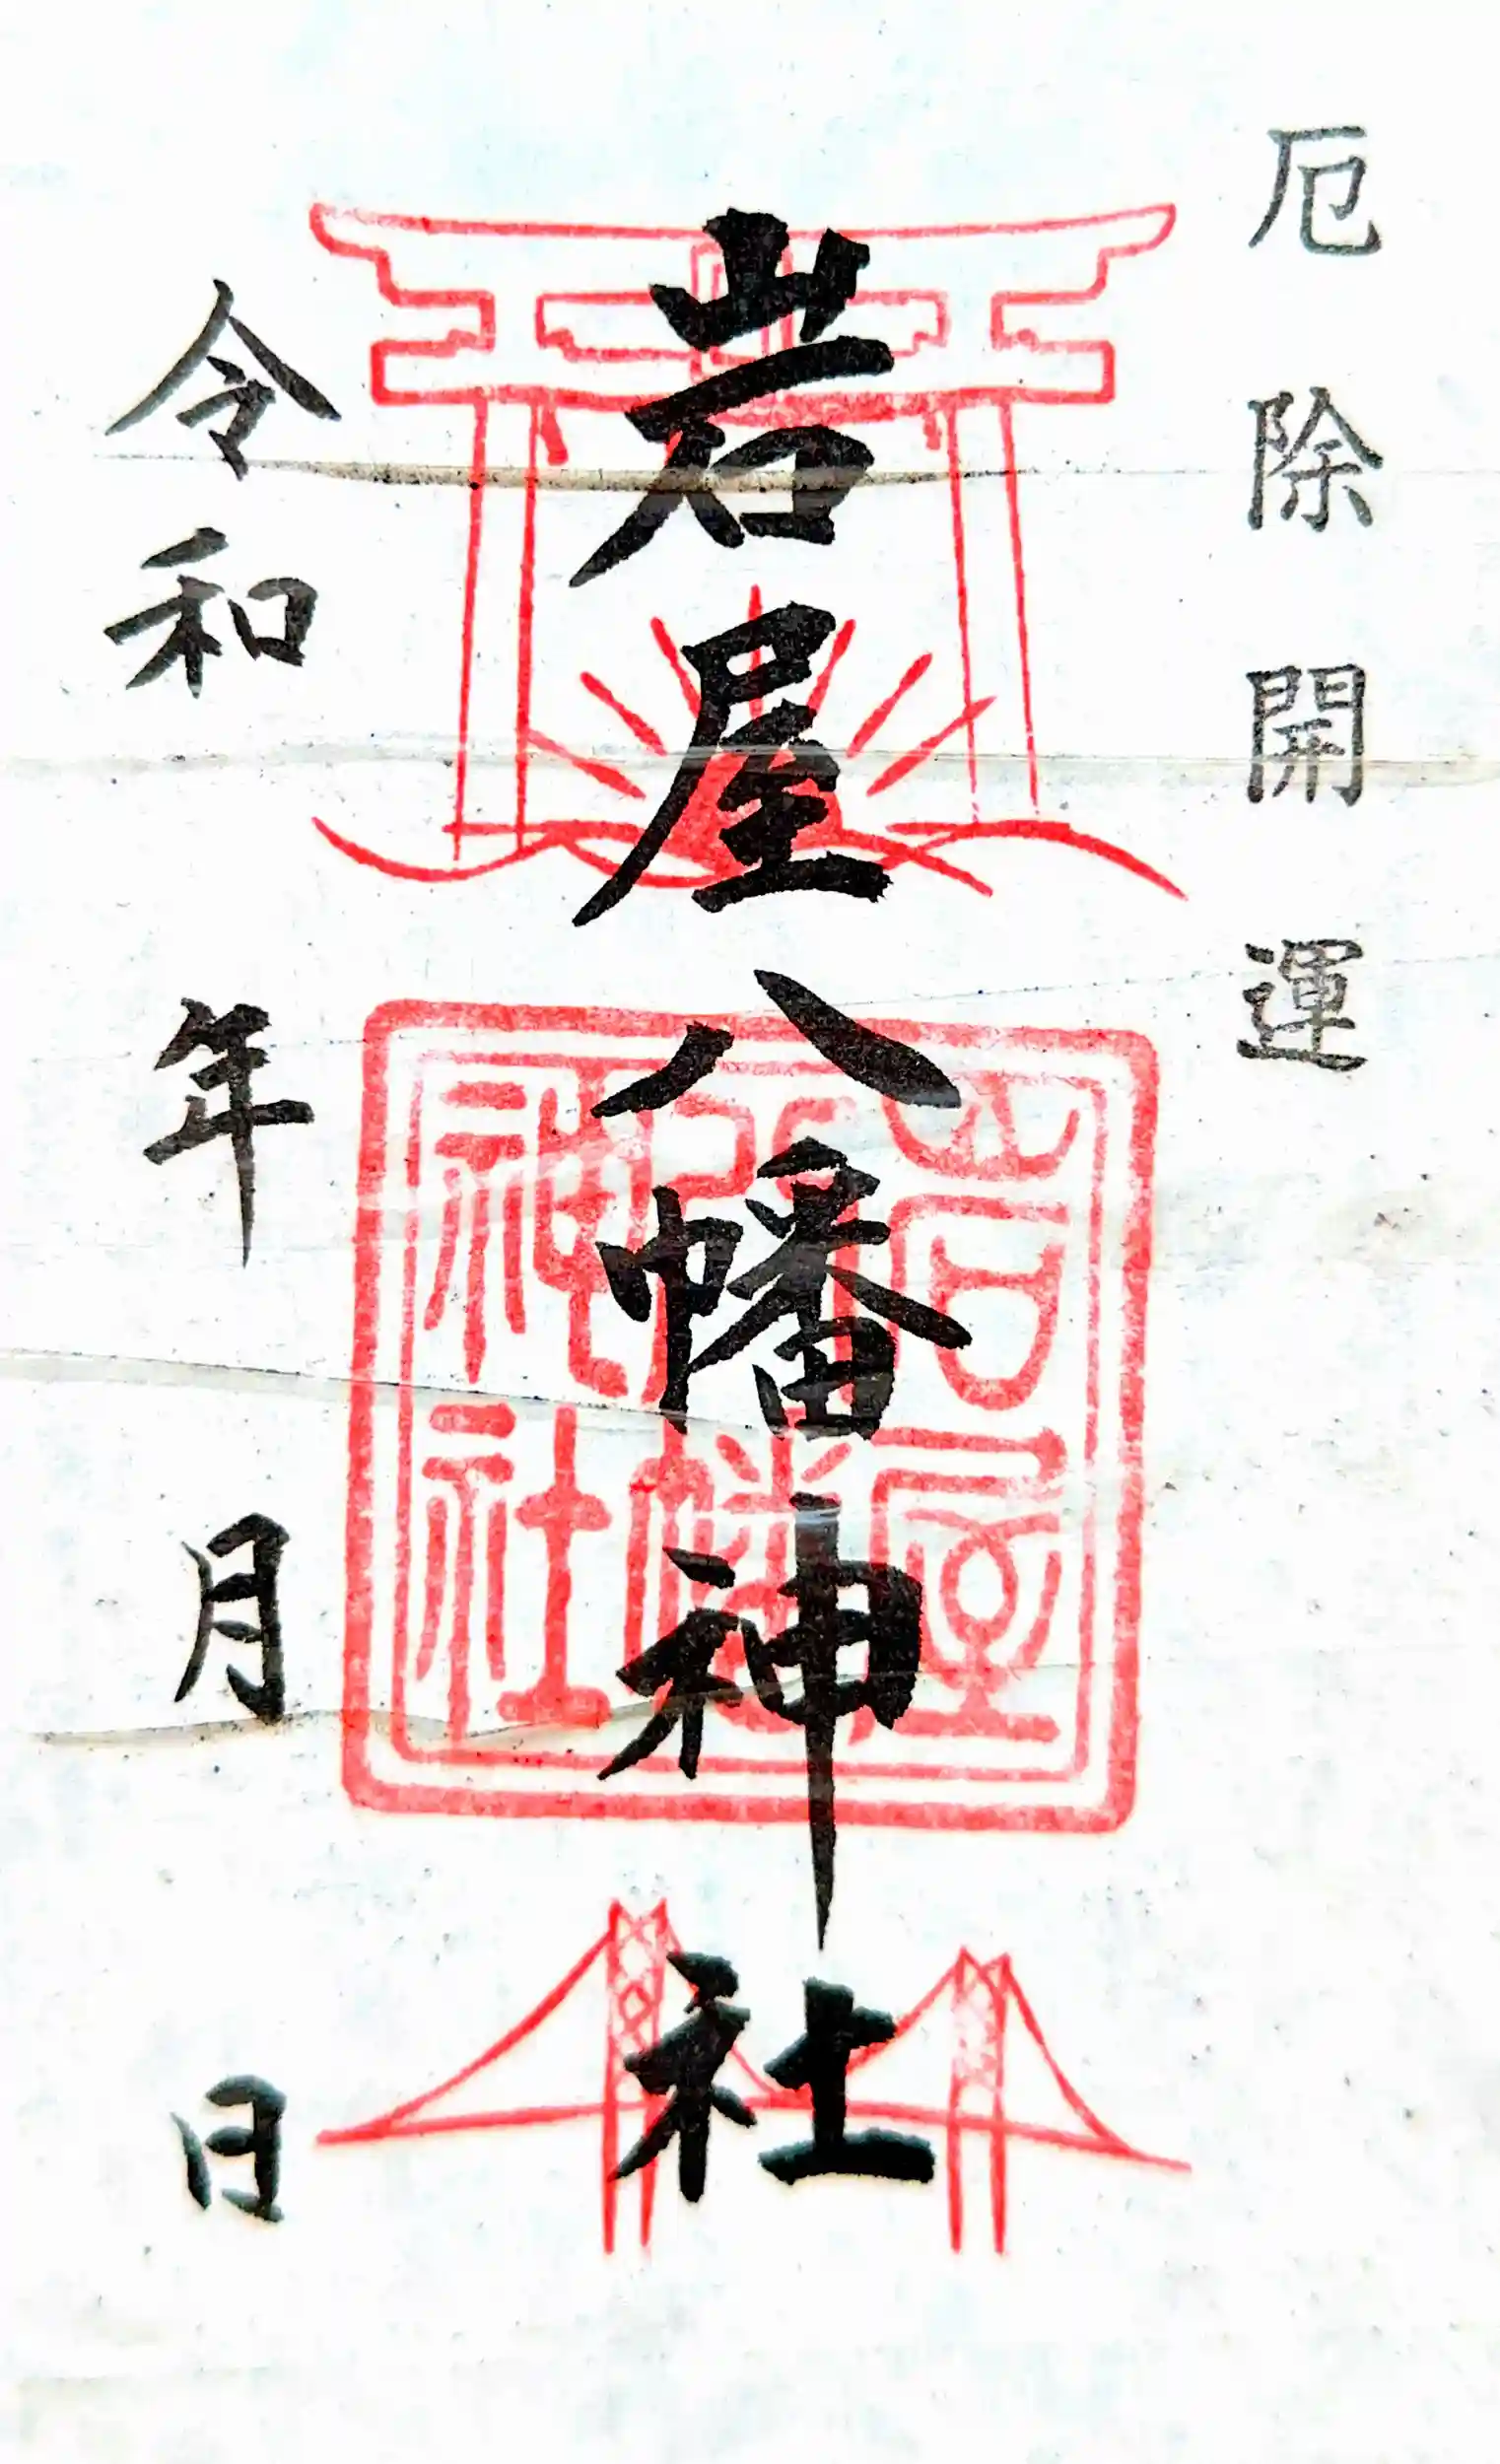 厄除開運
岩屋八幡神社
岩屋八幡神社
令和 年 月 日